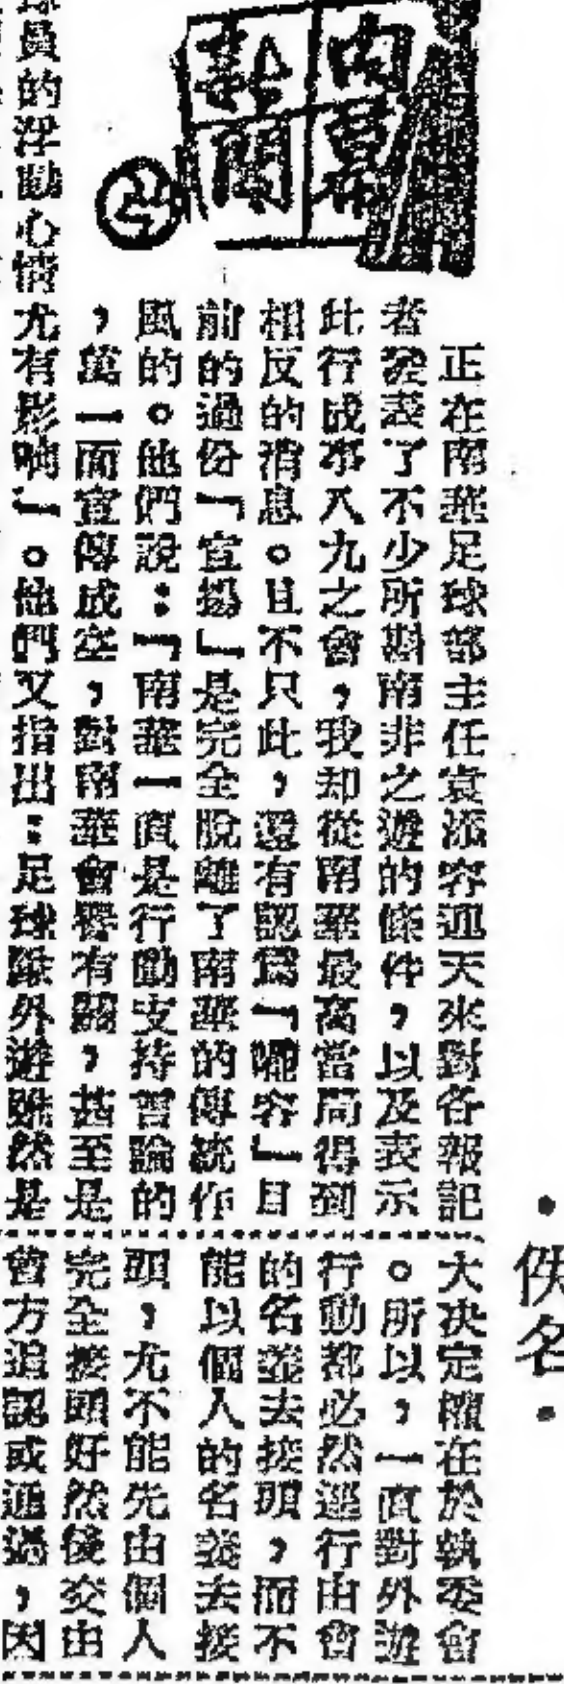 內幕
新聞
正在南華足球部主任袁添容通天來對各報記
者發表了不少所謂南非之遊的條件，以及表示
此行成事八九之會，我却從南華最高當局得到
相反的消息。且不只此，還有認爲「嘥容」目
前的過份「宣揚」是完全脫離了南華的傳統作
風的。他們說：「南華一直是行動支持言論的
，萬一而宣傳成空，對南華會譽有關，甚至是
球員的浮動心情尤有影响」。他們又指出：足球隊外遊雖然是
·佚名·
大决定權在於執委會
。所以，一直對外遊
行動都必然遵行由會
的名義去接頭，而不
能以個人的名義去接
頭，尤不能先由個人
完全接頭好然後交由
會方追認或通過，因